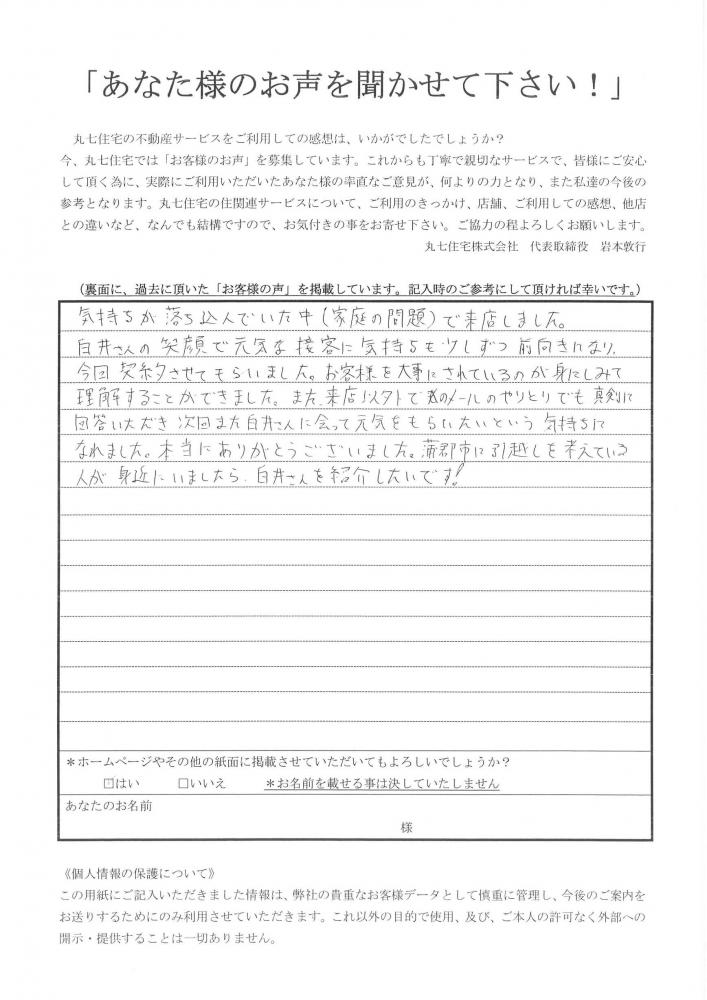 「あなた様のお声を聞かせて下さい！」
丸七住宅の不動産サービスをご利用しての感想は、いかがでしたでしょうか？
今、丸七住宅では「お客様のお声」を募集しています。これからも丁寧で親切なサービスで、皆様にご安心
して頂く為に、実際にご利用いただいたあなた様の率直なご意見が、何よりの力となり、また私達の今後の
参考となります。丸七住宅の住関連サービスについて、ご利用のきっかけ、店舗、ご利用しての感想、他店
との違いなど、なんでも結構ですので、お気付きの事をお寄せ下さい。ご協力の程よろしくお願いします。
丸七住宅株式会社　代表取締役　岩本敦行
（裏面に、過去に頂いた「お客様の声」を掲載しています。記入時のご参考にして頂ければ幸いです。）
気持ちが落ち込んでいた中（家庭の問題）で来店しました。
白井さんの笑顔で元気な接客に気持ちも少しずつ前向きになり、
今回契約させてもらいました。お客様を大事にされているのが身にしみて
理解することができました。また、来店以外でものメールのやりとりでも真剣に
回答いただき次回また白井さんに会って元気をもらいたいという気持ちに
なれました。本当にありがとうございました。蒲郡市に引越しを考えている
人が身近にいましたら、白井さんを紹介したいです!
＊ホームページやその他の紙面に掲載させていただいてもよろしいでしょうか？
□はい　□いいえ　＊お名前を載せる事は決していたしません
あなたのお名前
様
《個人情報の保護について》
この用紙にご記入いただきました情報は、弊社の貴重なお客様データとして慎重に管理し、今後のご案内を
お送りするためにのみ利用させていただきます。これ以外の目的で使用、及び、ご本人の許可なく外部への
開示・提供することは一切ありません。